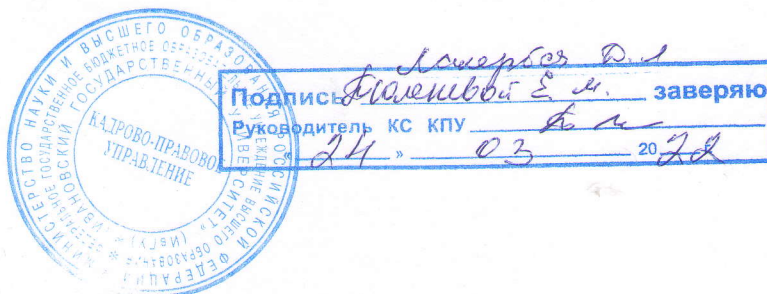 МИНИСТЕРСТВО НАУКИ И ВЫСШЕГО ОБРАЗОВАНИЯ РОССИЙСКОЙ ФЕДЕРАЦИИ
ФЕДЕРАЛЬНОЕ ГОСУДАРСТВЕННОЕ БЮДЖЕТНОЕ ОБРАЗОВАТЕЛЬНОЕ УЧРЕЖДЕНИЕ ВЫСШЕГО ОБРАЗОВАНИЯ
"ИВАНОВСКИЙ ГОСУДАРСТВЕННЫЙ УНИВЕРСИТЕТ" (ИвГУ)
КАДРОВО-ПРАВОВОЕ
УПРАВЛЕНИЕ
Д. А.
Подпись Тюленевой Е. М. заверяю
Руководитель КС КПУ
« 24 » 03 20 22